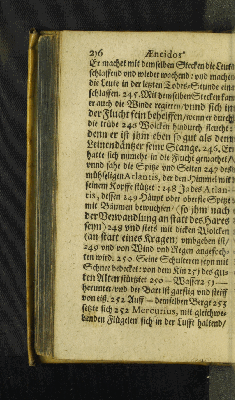 276 Æneidos
Er machet mit demselben Stecken die Leuthe
schlaffend und wieder wachend: und machen
die Leute in der letzten Todts-Stunde ein-
schlaffen. 245. Mit demselben Stecken kan
er auch die Winde regieren/ vnnd sich in
der Flucht sein behelffen/ wenn er durch
die trübe 246 Wolcken hindurch fleucht:
denn er ist ihm eben so gut als dem
Leinendäntzer seine Stange. 246. Er
hatte sich nunmehr in die Flucht gemachet/
vnnd sahe die Spitze und Seiten 247 des
mühseligen Arlantis, der den Himmel mit
seinem Kopffe stützet: 148 Jedes Arlan-
tis, dessen 249 Häupt oder oberste Spitze
mit Bäumen bewuchsen/ (so ihm nach
der Verwandlung an statt des Hares
seyn) 248 und stets mit dicken Wolcken
(an statt eines Kragens) umbgeben ist/
249 und von Wind und Regen angefoch-
ten wird. 250. Seine Schulteren seyn mit
Schnee bedecket: von dem Kin 251 des gu-
ten Alten stürtzet 250 — Wasser 251 —
herunter/ und der Bart ist garstig und steiff
von eiß. 252 Auff — demselben Berge 253
setzte sich 252 Mercurius, mit gleichwe-
benden Flügelen sich in der Lufft haltend/